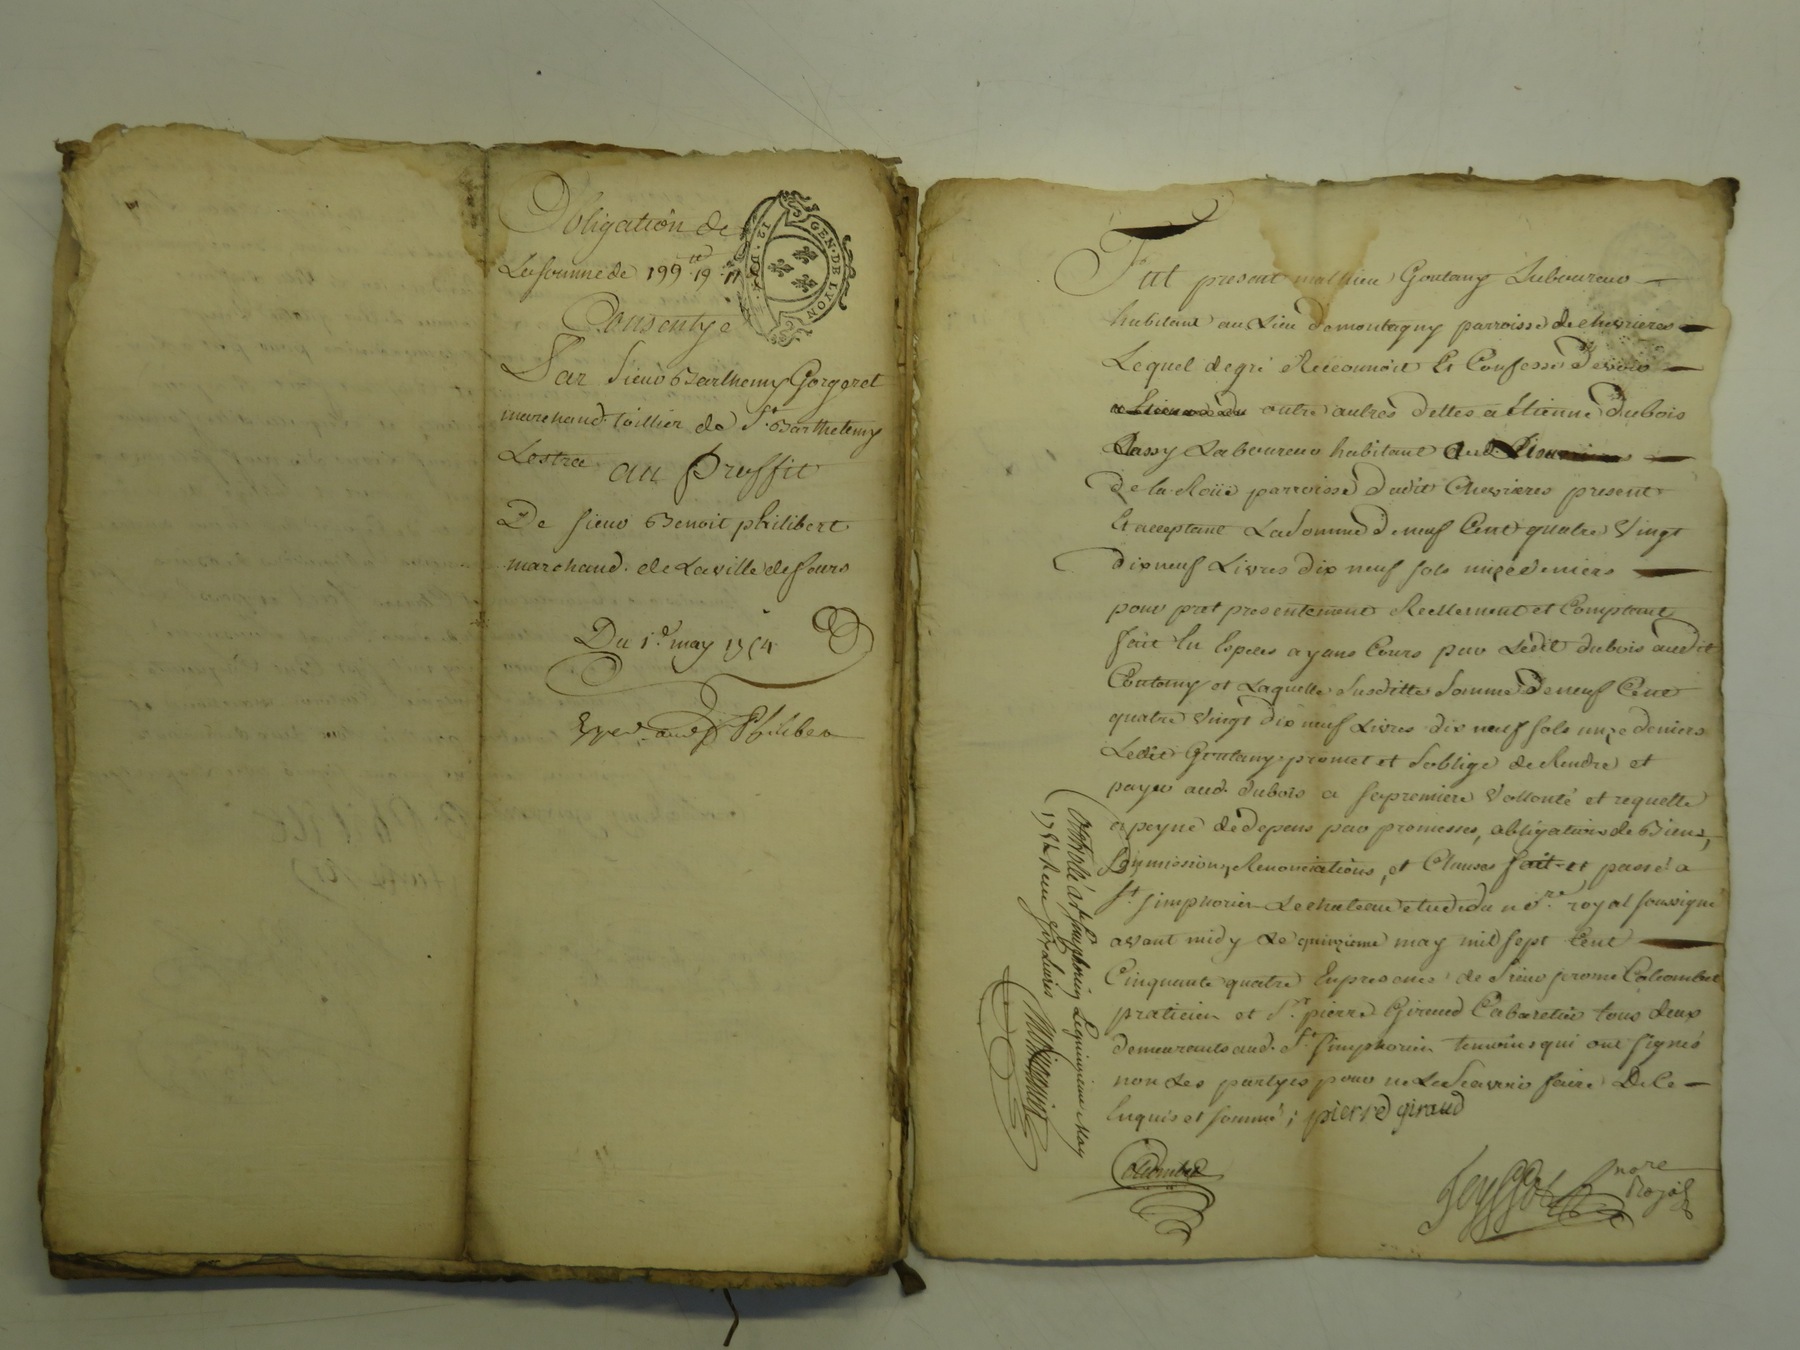 Obligation de
La somme de 199lt 19 11
GEN. DE LYON
Consentye
Par Sieur Barthemy Gorgeret
marchand toillier de St. Barthelemy
Lestra au proffit
De sieur Benoit philibert
marchand de La ville de fours
Du 1er may 1754
Exped. aud. Philiber
Fut present mathieu Goutany Laboureur
habitant au Lieu de montagny parroisse de chevrieres
Lequel de gré Reconnoit Et Confesse Devoir
outre autres dettes a Etienne Dubois
Passy Laboureur habitant aud.
De la Roüe parroisse dudit Chevrieres present
Et acceptant La somme De neuf Cent quatre Vingt
dix neuf Livres dix neuf sols unze deniers
pour pret presentement Reellement et Comptant
fait En Especes ayans Cours par Ledit dubois audit
Goutany et Laquelle Susditte Somme De neuf Cent
quatre Vingt dix neuf Livres dix neuf sols unze deniers
Ledit Goutany promet et Soblige de Rendre et
payer aud. dubois a sa premiere Vollonté et requette
a peyne de depens par promesses, obligations de Biens,
Soumissions, Renonciations, et Clauses fait et passé a
St. simphorien Le chateau etude du nore. royal soussigné
avant midy Le quinzieme may mil sept Cent
Cinquante quatre En presence de Sieur jerome Colombet
praticien et Sr. pierre Giraud Cabaretier tous deux
demeurants aud. St. simphorien temoins qui ont signés
non Les partyes pour ne Le Scavoir faire De Ce
Enquis et sommé ; pierre giraud
Colombet
nore Royal
Controllé a St simphorien Le quinzieme May
1754 Reçu six Livres